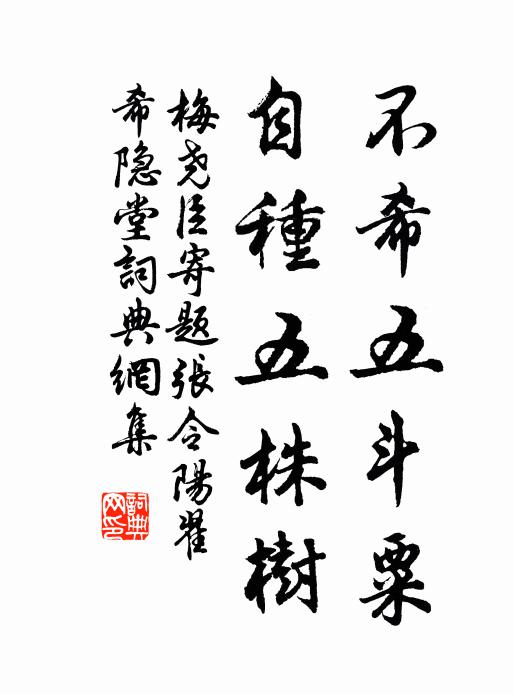 不希五斗粟
自種五株樹
梅尧臣寄题張令陽翟
希隐堂詞典網集
詞典網印